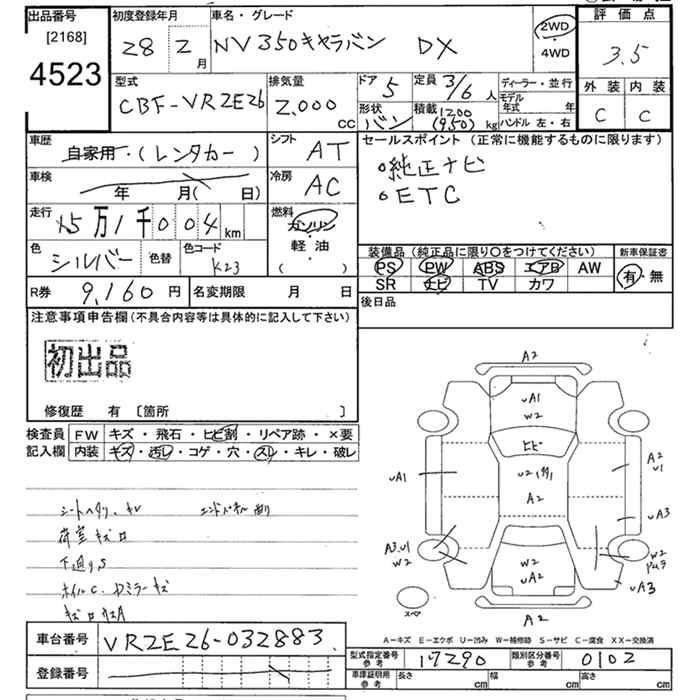 出品番号
[2168]
4523
初度登録年月
28 2 月
車名・グレード
NV350キャラバン DX
2WD
4WD
評価点
3.5
外装 内装
C C
型式
CBF-VR2E26
排気量
2.000 CC
ドア 5
定員 3/6 人
形状 バン
積載 1200 (950) kg
ディーラー・並行
モデル年式 年
ハンドル 左・右
車歴
自家用・(レンタカー)
シフト
AT
車検
年 月( 日)
冷房
AC
走行
15万1千004 km
燃料
ガソリン
軽油
( )
色
シルバー
色替
色コード
K23
R券 9,160 円
名変期限 月 日
セールスポイント (正常に機能するものに限ります)
純正ナビ
ETC
装備品 (純正品に限り〇をつけてください)
PS PW ABS エアB AW
SR ナビ TV カワ
新車保証書
有・無
後日品
注意事項申告欄 (不具合内容等は具体的に記入して下さい)
初出品
修復歴 有 〔箇所 〕
検査員記入欄
FW キズ・飛石・ヒビ割・リペア跡・×要
内装 キズ・汚レ・コゲ・穴・スレ・キレ・破レ
荷室キズロ
A2
UA1
W2
ヒビ
UA1
A2
U1
A2
UA3
A3.U1
W2
W2
UA2
W2
UA3
スペア
A2
A－キズ E－エクボ U－凹み W－補修跡 S－サビ C－腐食 XX－交換済
車台番号 VR2E26-032883
登録番号
型式指定番号 参考 17290
類別区分番号 参考 0102
車庫証明用 参考 長さ cm 幅 cm 高さ cm